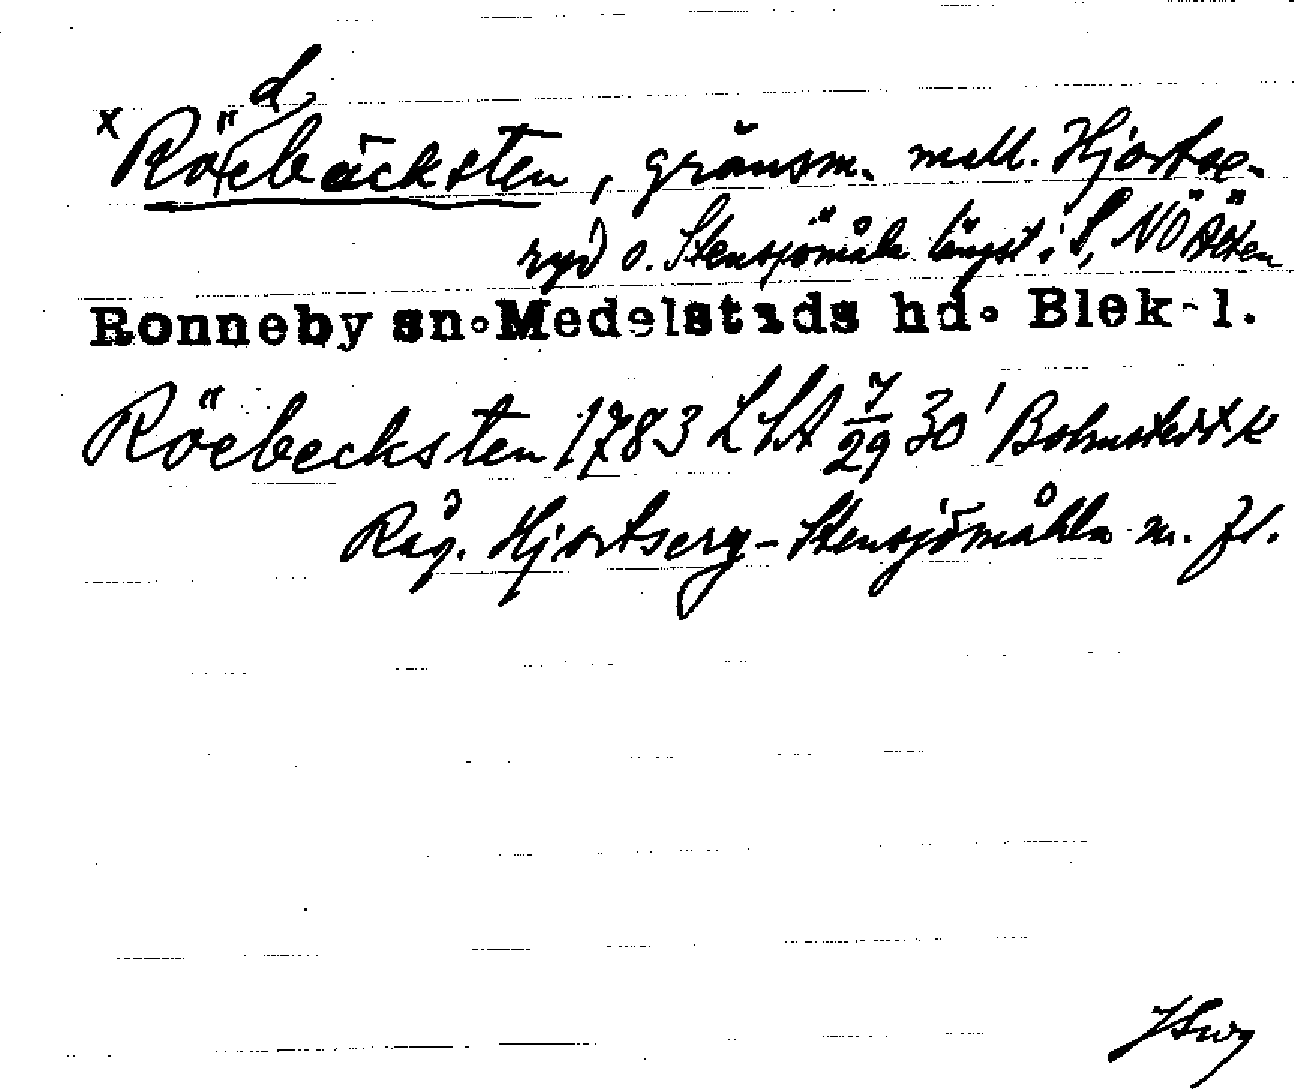 x Rö(d)ebäcksten, gränsm. mell. Hjortse-
ryd o. Stensjömåla längst i S, NÖ
Ronneby sn. Medelstads hd. Blek. l.
Röebecksten 1783 LSA 7/29 30'
Råg. Hjortsery-Stensjömåhla m. fl.